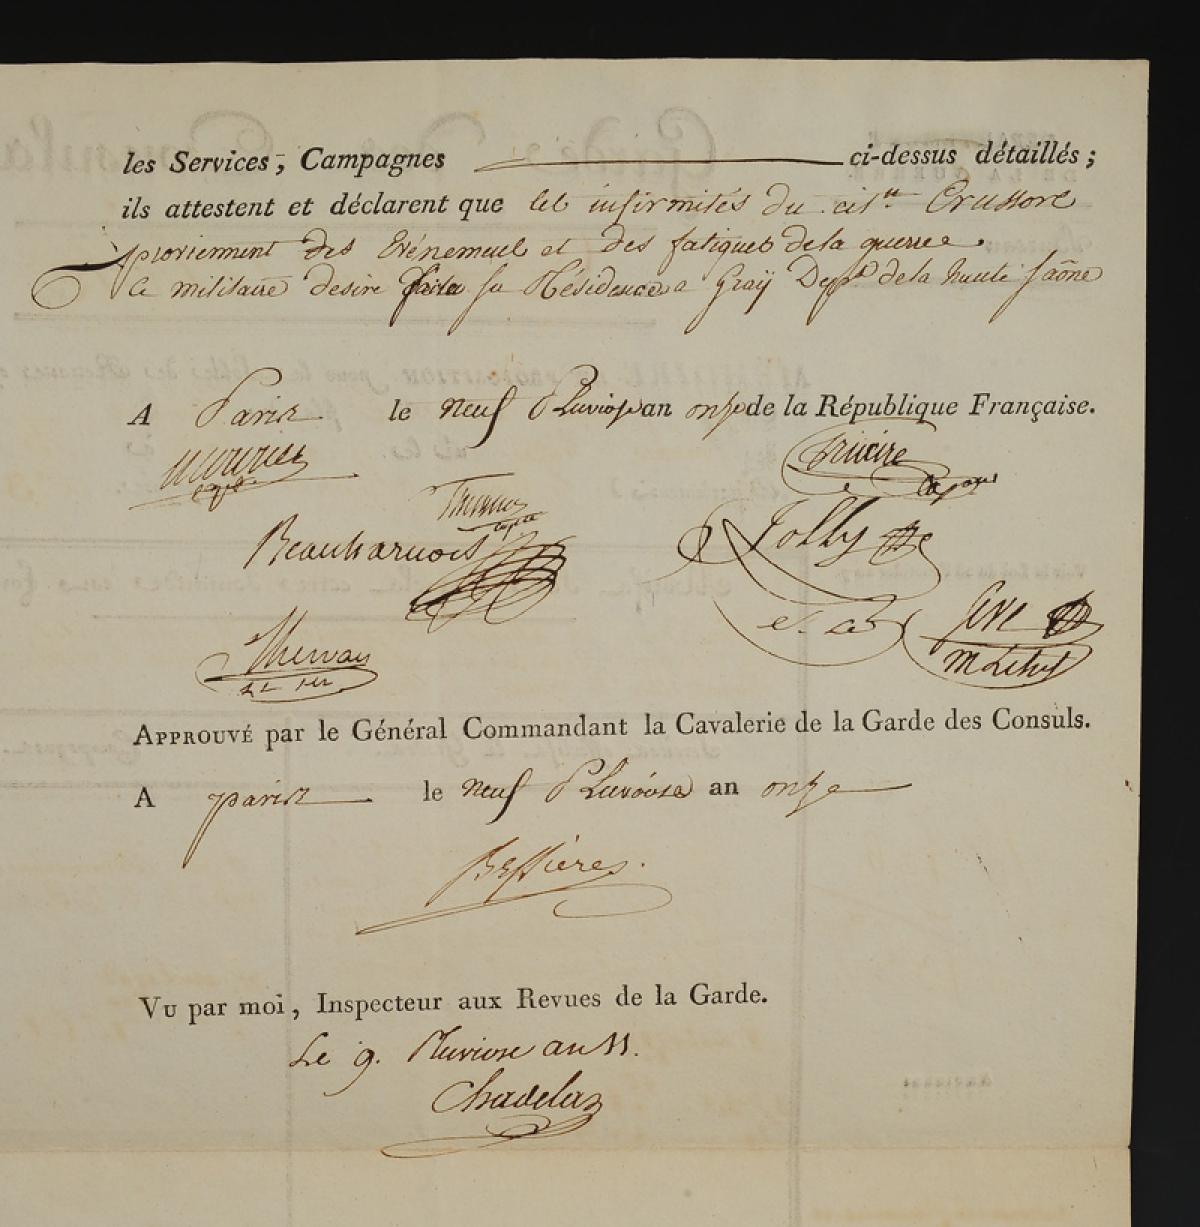 les Services, Campagnes ci-dessus détaillés ;
ils attestent et déclarent que les infirmités du cit.en Crussore
proviennent des Evénemens et des fatigues de la guerre.
Ce militaire desire faire sa Résidence a Gray Dep.t de la haute Saône
A Paris le neuf Pluviose an onze de la République Française.
Beauharnois
Jolly
APPROUVÉ par le Général Commandant la Cavalerie de la Garde des Consuls.
A paris le neuf Pluviôse an onze
Bessières.
VU par moi, Inspecteur aux Revues de la Garde.
Le 9. Pluviose an 11.
Chadelas